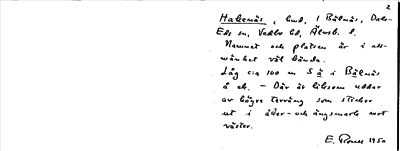 2
Hakenäs, hmd, i Bälnäs, Dals-
Eds sn, Vedbo hd, Älvsb. l.
Namnet och platsen är i all-
mänhet väl kända.
Låg c:a 100 m S ä i Bälnäs
å ek. – Där är liksom uddar
av högre terräng som sticker
ut i åker- och ängsmark mot
väster.
E. 1950